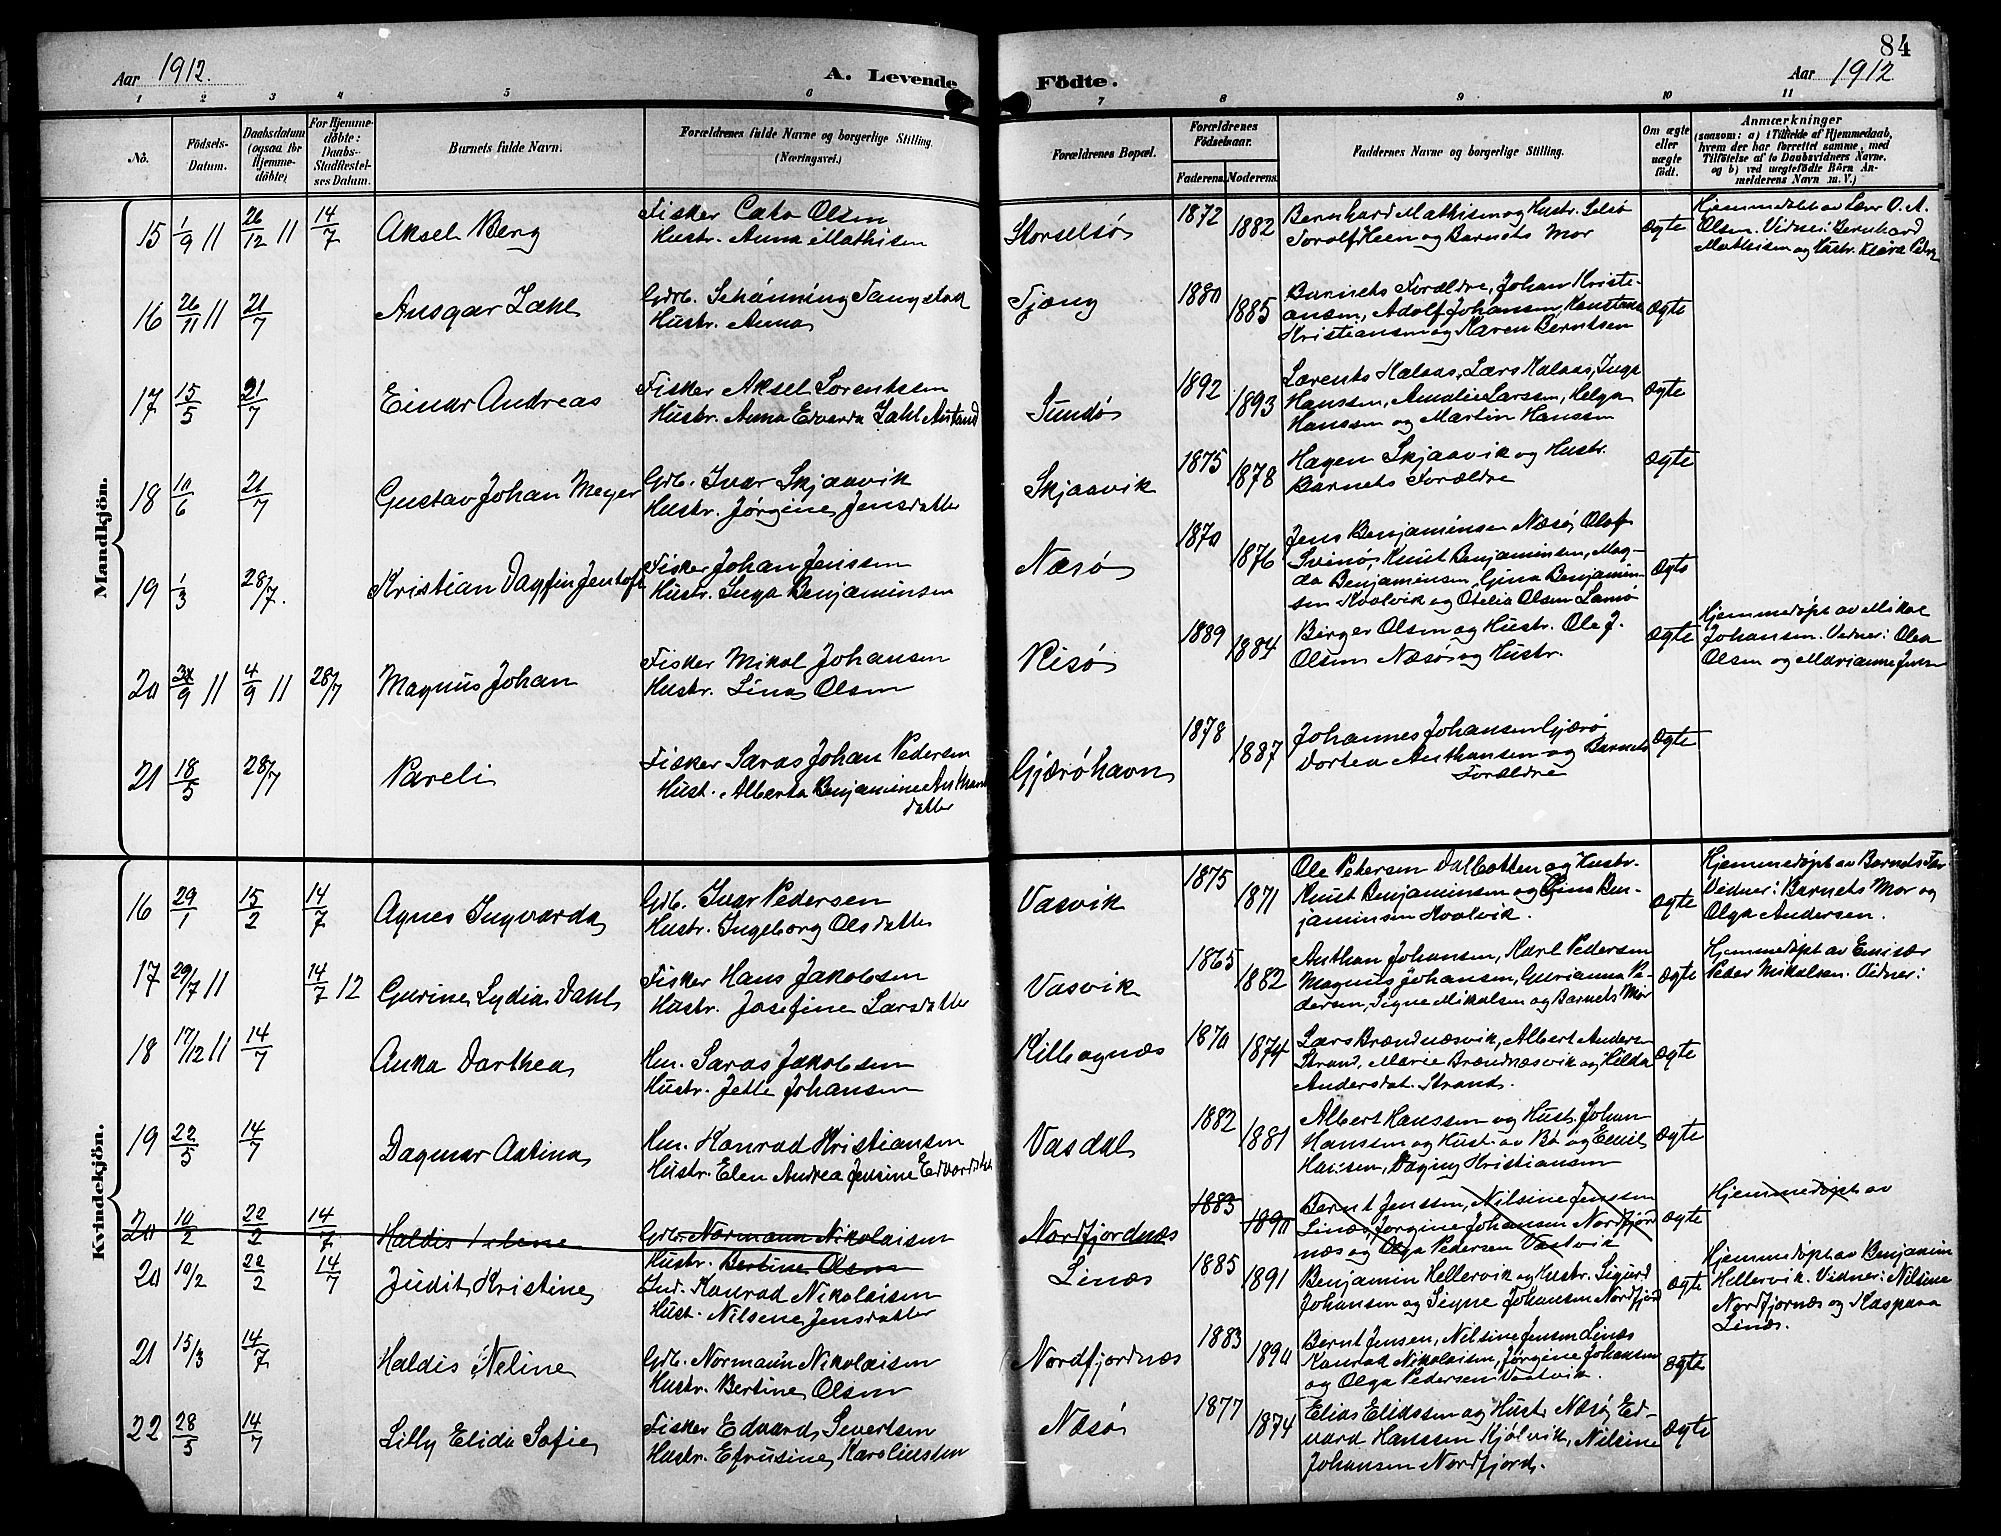 84
Aar 1912.
A. Levende
Födte.
Aar 1912
1 2 3 4 5 6 7 8 9 10 11
No.
Födsels-
Datum.
Daabsdatum
(ogsaa for
Hjemme-
döbte)
For Hjemme-
döbte:
Daabs-
Stadfæstel-
ses Datum.
Barnets fulde Navn.
Forældrenes fulde Navne og borgerlige Stilling.
(Næringsvei.)
Forældrenes Bopæl.
Forældrenes
Födselsaar.
Faderens. Moderens.
Faddernes Navne og borgerlige Stilling.
Om ægte
eller
uægte
födt.
Anmærkninger
(saasom: a) i Tilfælde af Hjemmedaab,
hvem der har forrettet samme, med
Tilföielse af to Daabsvidners Navne,
og b) ved uægtefödte Börn An-
melderens Navn m. V.)
Mandkjön.
15 1/9 11 26/12 11 14/7 Aksel Berg
Fisker Cato Olsen
Hustr. Anna Mathisen
Storselsø 1872 1882
Bernhard Mathisen og Hustr. Selsø
Torolf Heen og Barnets Mor
ægte
Hjemmedøbt av Lær O. A.
Olsen. Vidner: Bernhard
Mathisen og Hustr. Klara Peder
16 26/11 11 21/7 Ansgar Zahl
Gdb. Schånning Tangstad
Hustr. Anna
Tjæng 1880 1885
Barnets Forældre, Johan Kristi-
ansen, Adolf Johansen, Konstanse
Kristiansen og Karen Berntsen
ægte
17 15/5 21/7 Einar Andreas
Fisker Aksel Lorentssen
Hustr. Anna Edvarda Zahl Antand
Sundø 1892 1893
Lorents Kalaas, Lars Kalaas, Inga
Hanssen, Amalie Larssen, Helga
Hanssen og Martin Hanssen
ægte
18 10/6 21/7 Gustav Johan Meyer
Gdb. Ivar Skjaavik
Hustr. Jørgine Jensdatter
Skjaavik 1875 1878
Hagen Skjaavik og Hustr.
Barnets Forældre
ægte
19 1/3 28/7. Kristian Dagfin Jentoft
Fisker Johan Jenssen
Hustr. Inga Benjaminsen
Næsø 1870 1876
Jens Benjaminsen Næsø, Olaf
Svinø, Knut Benjaminsen, Mag-
da Benjaminsen, Gina Benjamin-
sen Kvalvik og Otelia Olsen Lamø
ægte
20 /9 11 4/9 11 28/7 Magnus Johan
Fisker Mikal Johansen
Hustr. Lina Olsen
Risø 1889 1884
Birger Olsen og Hustr. Ole J.
Olsen Næsø og Hustr.
ægte
Hjemmedøpt av Mikal
Johansen. Vidner: Olea
Olsen og Marianne Jensen
21 18/5 28/7 Pareli
Fisker Saras Johan Pedersen
Hust. Alberta Benjamine
datter
Gjærøhavn 1878 1887
Johannes Johansen Gjærø
Dortea Anthansen og Barnets
Forældre
ægte
Kvindekjön.
16 29/1 15/2 14/7 Agnes Ingvarda
Gdb. Ivar Pedersen
Hustr. Ingeborg Olsdatter
Vasvik 1875 1871
Ole Petersen Dalbotten og Hustr.
Knut Benjaminsen og Gina Ben-
jaminsen Kvalvik.
ægte
Hjemmedøpt av Barnets Far
Vidner: Barnets Mor og
Olga Andersen.
17 29/7 11 14/7 12 Gurine Lydia Dahl
Fisker Hans Jakobsen
Hustr. Josefine Larsdatter
Vasvik 1865 1882
Anthan Johansen, Karl Pedersen
Magnus Johansen, Gurianna Pe-
dersen, Signe Mikalsen og Barnets Mor
ægte
Hjemmedøpt av Emisær
Peder Mikalsen. Vidner:
18 17/12 11 14/7 Anka Dorthea
Hm. Saras Jakobsen
Hustr. Jette Johansen
Kilbognæs 1870 1874
Lars Brændnæsvik, Albert Anders
Strand, Marie Brændnæsvik og Hilda
Andersdat. Strand.
ægte
19 22/5 14/7 Dagmar Astina
Hm. Konrad Kristiansen
Hustr. Elen Andrea Jensine Edvardsdt
Vasdal 1882 1881
Albert Hanssen og Hust, Johan
Hanssen og Hust. av Bø og Emil
Hansen, Daging Kristiansen
ægte
20 10/2 22/2 14/7 Haldis Helene
Gdb. Normann Nikolaisen
Hustr. Bertine Olsen
Nordfjordnæs 1883 1890
Bernt Jenssen, Nilsine Jenssen
Linæs, Jorgine Johansen Nordfjord
næs og Olga Pedersen Vastvik
ægte
Hjemmedøpt av
20 10/2 22/2 14/7 Judit Kristine
Ind. Konrad Nikolaisen
Hust. Nilsene Jensdatter
Linæs 1885 1891
Benjamin Hellervik og Hustr. Sigurd
Johansen og Signe Johansen Nordfjord
ægte
Hjemmedøpt av Benjamin
Hellervik. Vidner: Nilsine
Nordfjornæs og Kaspara
Linæs.
21 15/3 14/7 Haldis Neline
Gdb. Normann Nikolaisen
Hustr. Bertine Olsen
Nordfjordnæs 1883 1890
Bernt Jensen, Nilsine Jensen Linæs
Konrad Nikolaisen, Jørgine Johansen
og Olga Pedersen Vastvik.
ægte
22 28/5 14/7 Lilly Elida Sofie
Fisker Edvard Severtsen
Hustr. Efrusine Karoliussen
Næsø 1877 1874
Elias Eliassen og Hust. Næsø, Ed-
vard Hanssen Kjølvik, Nilsine
Johansen Nordfjord.
ægte